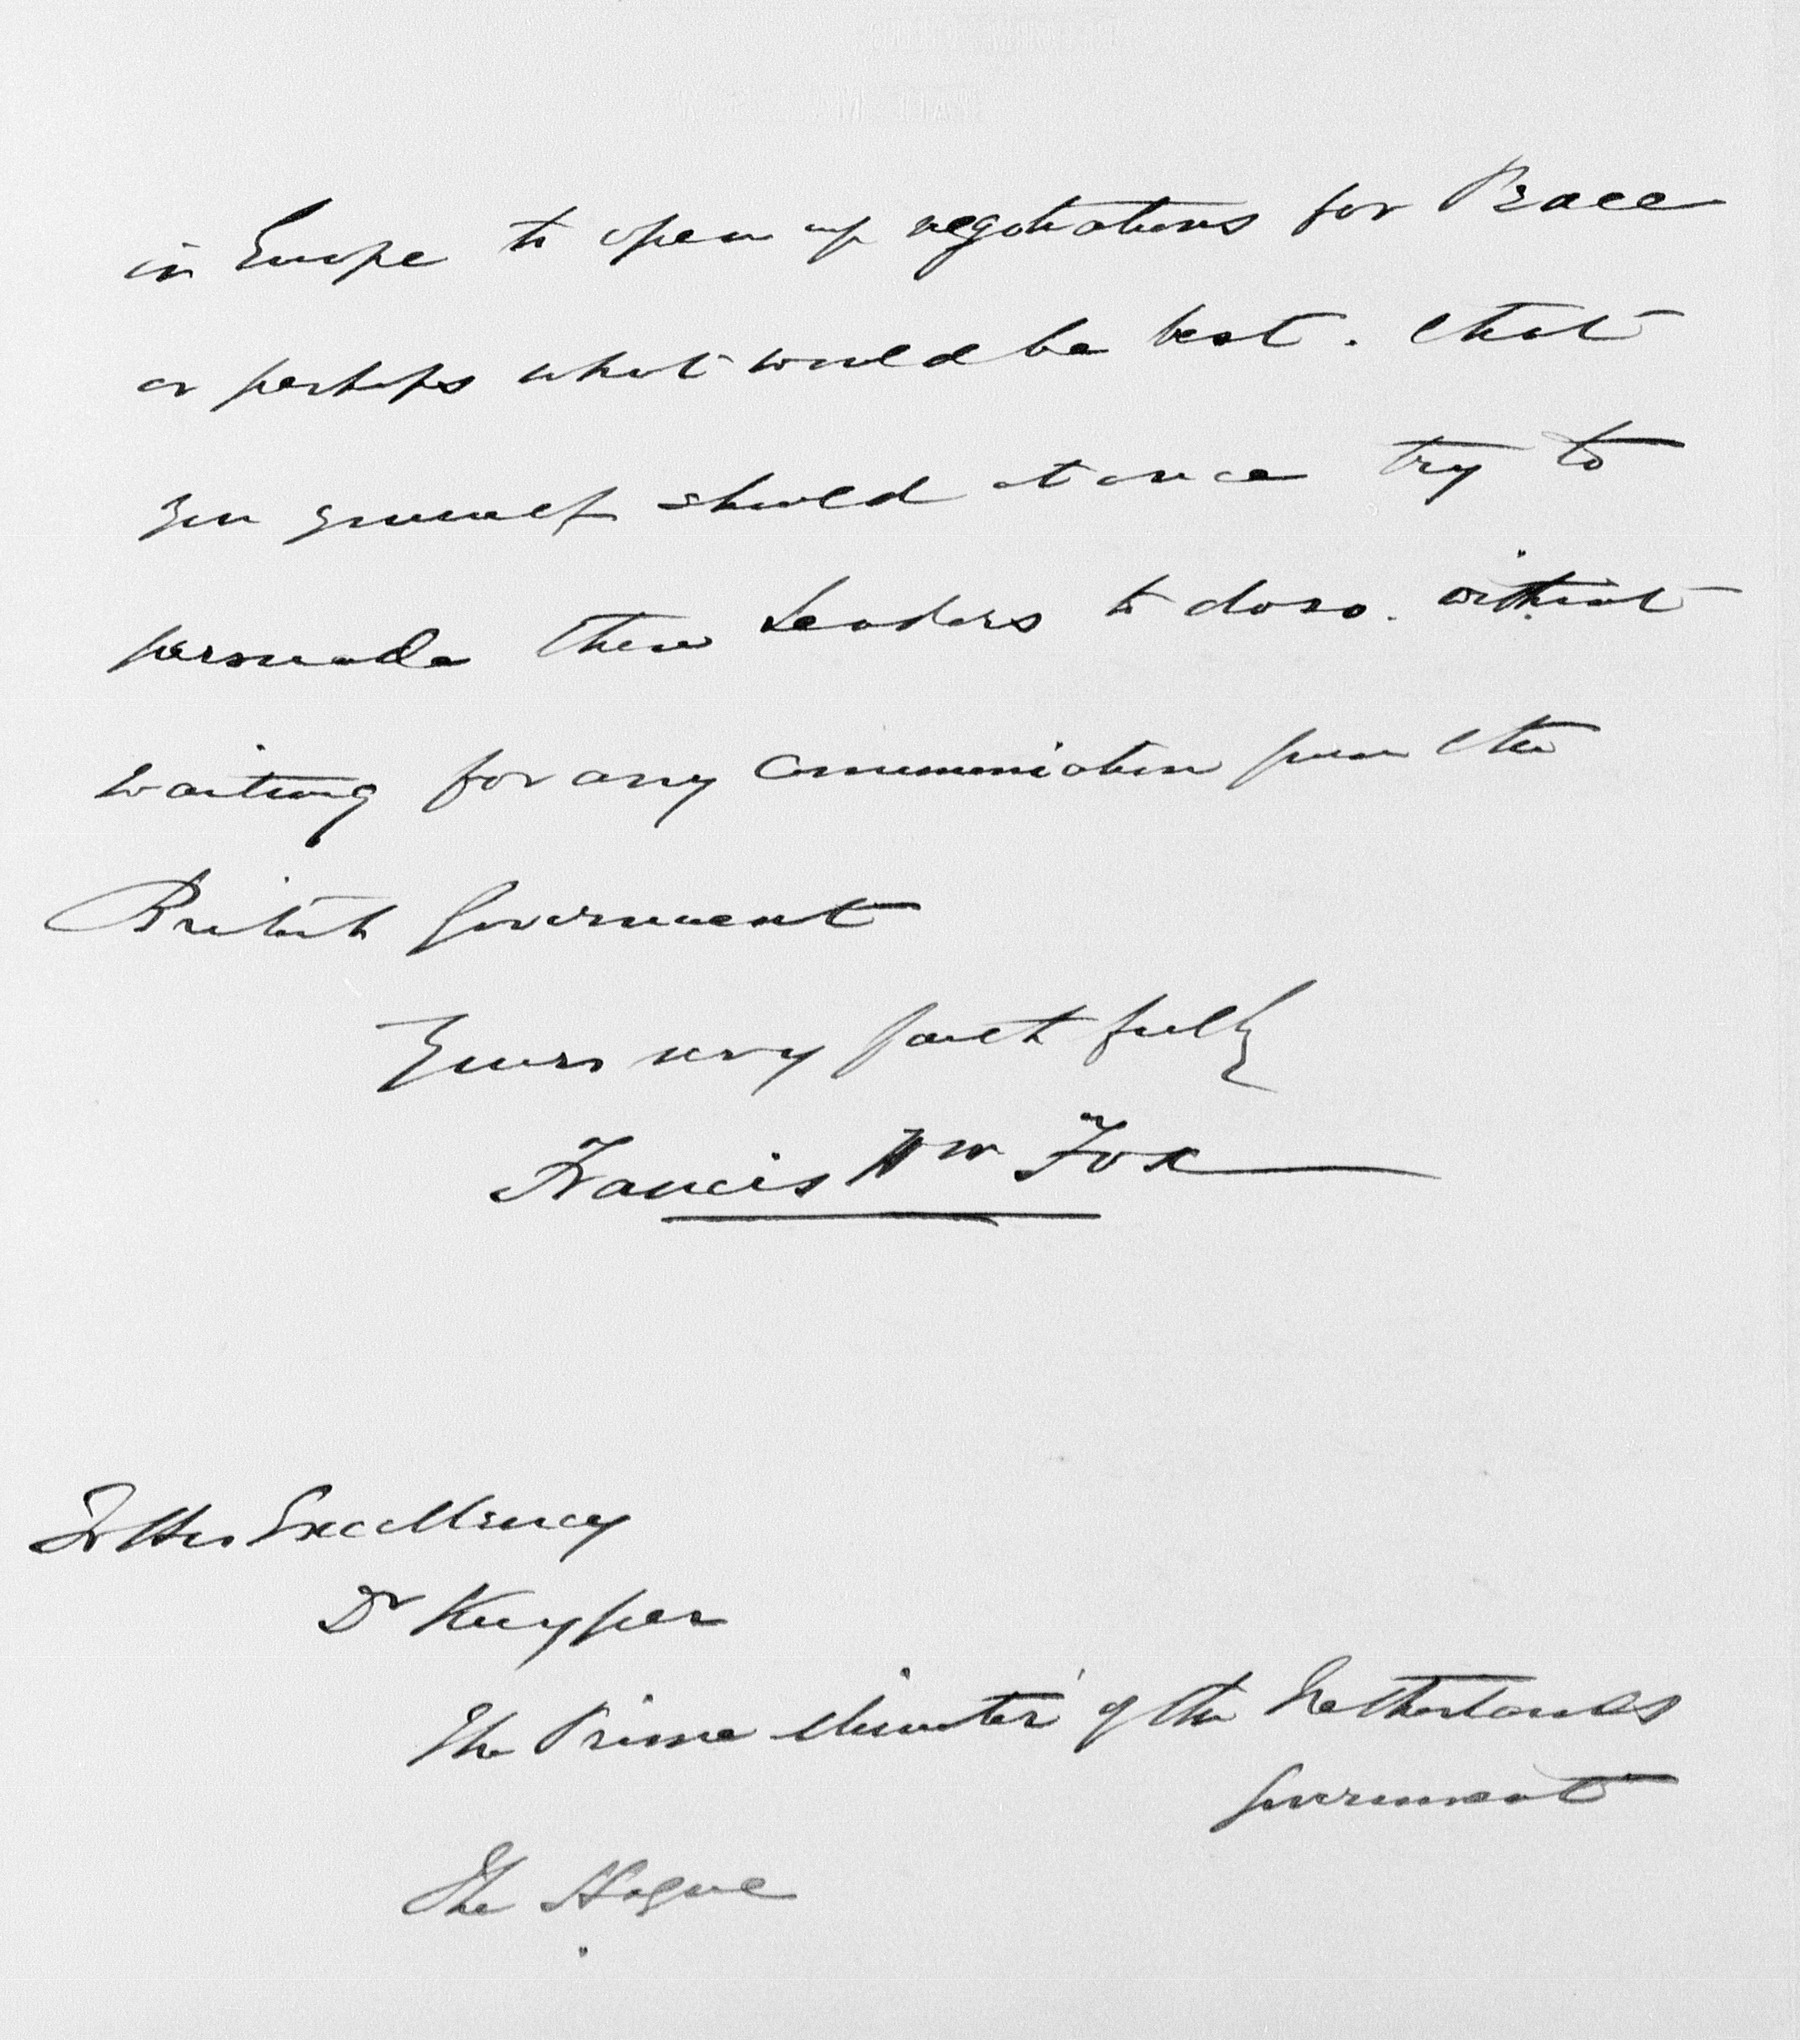 in Europe to open up negotiations for Peace
or perhaps what would be best. that
you yourself should at once try to
persuade these Leaders to do so. without
waiting for any communication from the
British Government
Yours very faithfully
Francis Wm Fox
To His Excellency
Dr Kuyper
The Prime Minister of the Netherlands
Government
The Hague